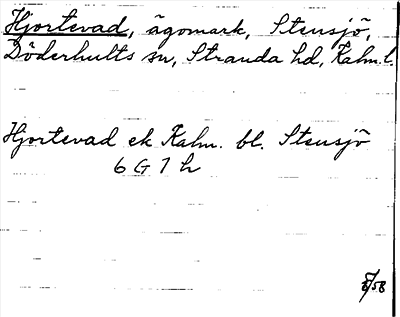 Hjortevad, ägomark, Stensjö,
Döderhults sn, Stranda hd, Kalm. l.
Hjortevad ek Kalm. bl. Stensjö
6 G 7 h